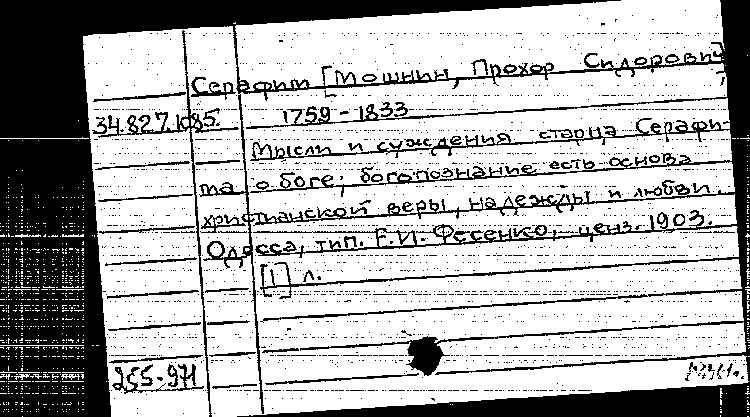 Серафим [Мошнин, Прохор Сидорович]
34.827.1085. 1759-1833
Мысли и суждения старца Серафи-
ма о боге; богопознание есть основа
христианской веры, надежды и любви.
Одесса, тип. Е.И. Фесенко, ценз. 1903.
[1] л.
255-971